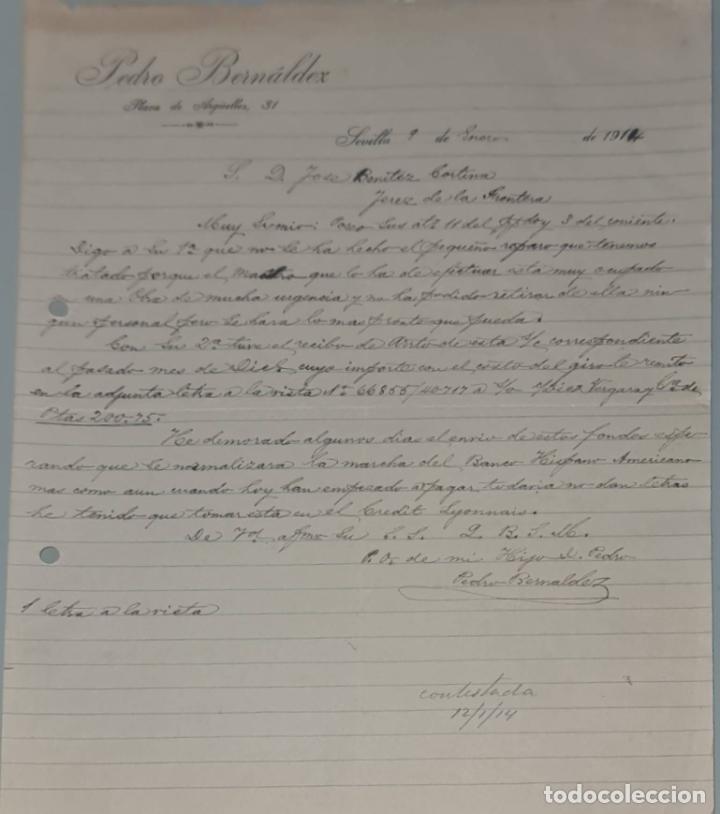 Pedro Bernáldez
Plaza de Argüelles, 31
Sevilla 9 de Enero de 1914
S. D. Jose Benitez Cortina
Jerez de la Frontera
Muy Sr mio: Poseo sus ats 11 del ppdo y 3 del corriente.
Digo a Su 1ª que no se ha hecho el pequeño reparo que tenemos
tratado porque el Maestro que lo ha de efectuar esta muy ocupado
en una Obra de mucha urgencia y no ha podido retirar de ella nin
gun personal pero se hara lo mas pronto que pueda.
Con Su 2ª tuve el recibo de Arrto de esta S/c correspondiente
al pasado mes de Dicb cuyo importe con el costo del giro le remito
en la adjunta letra a la vista Nº 66855/40717 a c/o Ybiez Vergara y Cª de
Ptas 200.75.
He demorado algunos dias el envio de estos fondos espe
rando que se normalizara la marcha del Banco Hispano Americano
mas como aun cuando hoy han empesado a pagar todavia no dan letras
he tenido que tomar esta en el Credit Lyonnais.
De Vd. afmo Su S. S. Q. B. S. M.
P. O. de mi Hijo D. Pedro
Pedro Bernaldez
1 letra a la vista
contestada
12/1/14
todocoleccion